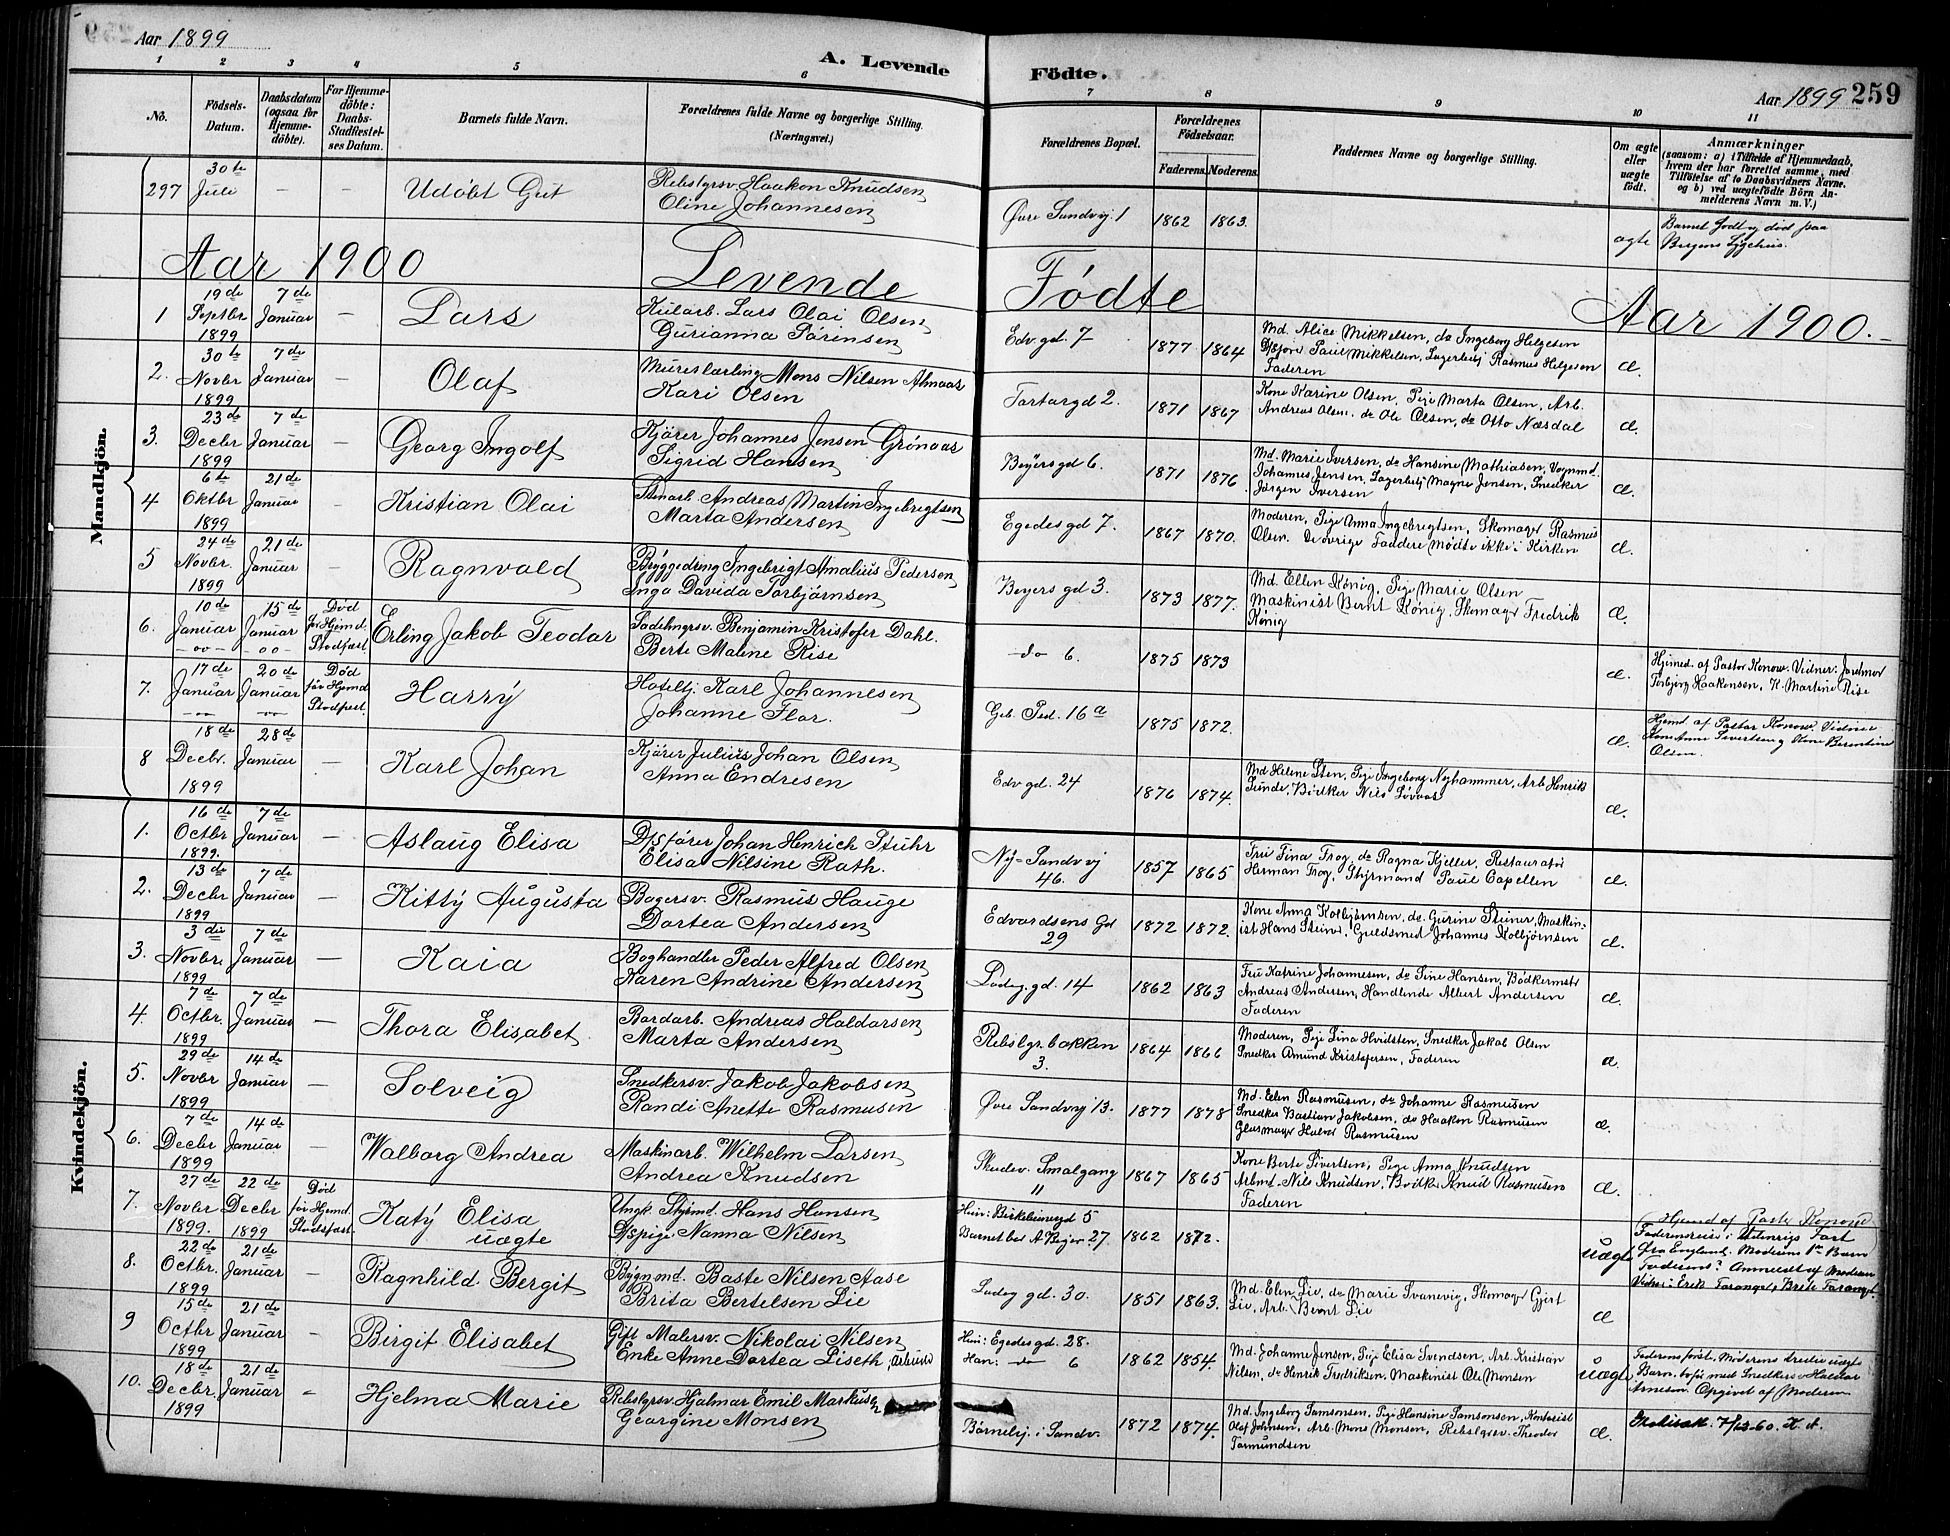 Aar 1899
A. Levende Fødte.
Aar 1899 259
1 2 3 4 5 6 7 8 9 10 11
No.
Fødsels-Datum.
Daabsdatum (ogsaa for Hjemmedøbte).
For Hjemmedøbte: Daabs-Stadfæstelses Datum.
Barnets fulde Navn.
Forældrenes fulde Navne og borgerlige Stilling.
(Næringsvei.)
Forældrenes Bopæl.
Forældrenes Fødselsaar.
Faderens. Moderens.
Faddernes Navne og borgerlige Stilling.
Om ægte eller uægte født.
Anmærkninger
(saasom: a) i Tilfælde af Hjemmedaab, hvem der har forrettet samme, med Tilføielse af to Daabsvidners Navne, og b) ved uægtefødte Børn Anmelderens Navn m. V.)
297 30te Juli – – Udøbt Gut Rebslgrsv. Haakon Knudsen Oline Johannesen Øvre Sandvig 1 1862 1863. ægte Barnet født og død paa Bergens Sygehus.
Aar 1900 Levende Fødte Aar 1900.–
Mandkjön.
1 19de Septbr 1899 7de Januar – Lars Kularb. Lars Olai Olsen Gurianna Sörensen Edv. gd. 7 1877 1864 Md. Alice Mikkelsen, do Ingeborg Helgesen Paul Mikkelsen, Lagerbetj Rasmus Helgesen Faderen æ.
2. 30te Novbr 1899 7de Januar – Olaf Murerlærling Mons Nilsen Almaas Kari Olsen Tartargd 2. 1871 1867 Kone Karine Olsen, Pige Marta Olsen, Arb. Andreas Olsen, do Ole Olsen, do Otto Næsdal æ.
3. 23de Decbr 1899 7de Januar – Georg Ingolf Kjører Johannes Jensen Grønaas Sigrid Hansen Beyers gd 6. 1871 1876 Md. Marie Iversen, do Hansine Mathiasen, Vognmd. Johannes Jensen, Lagerbetj Magne Jensen, Snedker Jørgen Iversen æ.
4 6te Oktbr 1899 21de Januar – Kristian Olai Stenarb. Andreas Martin Ingebregtsen Marta Andersen Egedes gd 7. 1867 1870. Moderen, Pige Anna Ingebregtsen, Skomager Rasmus Olsen. De øvrige Faddere mødte ikke i Kirken æ.
5 24de Novbr. 1899 21de Januar – Ragnvald Byggedreng Ingebrigt Amalius Pedersen Inga Davida Torbjørnsen Beyers gd 3. 1873 1877. Md. Ellen König, Pige Marie Olsen Maskinist Bernt König, Skomagr Fredrik König æ.
6. 10de Januar –oo– 15de Januar oo– Død før Hjemd. Stadfæst. Erling Jakob Teodor Sadelmgrsv. Benjamin Kristofer Dahl. Berte Maline Rise –do– 6. 1875 1873 æ. Hjemd. af Pastor Konow. Vidner: Jordmor Torbjørg Haakonsen, K. Martine Rise
7. 17de Januar –oo– 20de Januar –oo– Død før Hjemd. Stadfæst. Harry Hotelbtj. Karl Johannesen Johanne Flor. Geb. Ped. 16a 1875 1872. æ. Hjemd af Pastor Konow. Vidner Kone Anne Sivertsen og Kone Berentine Olsen
8 18de Decbr. 1899 28de Januar – Karl Johan Kjører Julius Johan Olsen Anna Endresen Edv gd. 24 1876 1874. Md Helene Sten, Pige Ingeborg Nyhammer, Arb Henrik Sunde, Bødker Nils Søvaas æ.
Kvindekjön.
1. 16de Octbr 1899. 7de Januar – Aslaug Elisa D/S fører Johan Henrich Stuhr Elisa Nilsine Rath. Ny-Sandvig 46. 1857 1865 Fru Tina Trog, do Ragna Kjeller, Restauratør Herman Trog, Styrmand Paul Capellen æ.
2. 13de Decbr 1899 7de Januar – Kitty Augusta Bagersv. Rasmus Hauge Dortea Andersen Edvardsens Gd 29 1872 1872. Kone Anna Kolbjørnsen, do. Gurine Steiner, Maskinist Hans Steiner, Guldsmed Johannes Kolbjørnsen æ.
3. 3die Novbr. 1899 7de Januar – Kaia Boghandler Peder Alfred Olsen Karen Andrine Andersen Ladeg. gd. 14 1862 1863 Fru Katrine Johannesen, do Sine Hansen, Bødkermstr Andreas Andersen, Handlende Albert Andersen Faderen æ.
4. 7de Octbr. 1899 7de Januar – Thora Elisabet Bordarb. Andreas Haldorsen Marta Andersen Rebslgr. bakken 3. 1864 1866 Moderen, Pige Lina Hvidsten, Snedker Jakob Olsen Snedker Amund Kristofersen, Faderen æ.
5. 29de Novbr 1899 14de Januar – Solveig Snedkersv. Jakob Jakobsen Randi Anette Rasmusen Øvre Sandvig 13. 1877 1878 Md. Elen Rasmusen, do Johanne Rasmusen Snedker Bastian Jakobsen, do Haakon Rasmusen Glasmagr Halvor Rasmusen æ.
6. 7de Decbr 1899 14de Januar – Walborg Andrea Maskinarb. Wilhelm Larsen Andrea Knudsen Skudev. Smalgang 11 1867 1865 Kone Berte Sivertsen, Pige Anna Knudsen Arbmd. Nils Knudsen, Bødker Knud Rasmusen Faderen æ.
7. 27de Novbr 1899. 22de Decbr 1899 Død før Hjemd. Stadfæst. Katy Elisa uægte Ungk. Styrmd. Hans Hansen D/Spige Nanna Nilsen Hun: Birkebeinergd 5 Barnet bor A Beyer 27 1862 1872. uægte Hjemd af Pastor Konow Faderens reise i Udenrigs Fart fra England. Moderens 1ste Barn Faderens? Anmeldt af Moderen Vidner: Erik Farangt, Brite Farangt.
8. 22de Octbr. 1899 21de Januar – Ragnhild Bergit Bygnmd. Baste Nilsen Aase Brita Bertelsen Lie Ladeg gd. 30. 1851 1863. Md. Elen Lie, do Marie Svanevig, Skomagr Gjert Lie, Arb. Bernt Lie æ
9 15de Octbr 1899 21de Januar – Birgit Elisabet Gift Malersv. Nikolai Nilsen Enke Anne Dortea Liseth, Hun: Egedes gd. 28. Han: –do– 6 1862 1854. Md. Johanne Jensen, Pige Elisa Svendsen, Arb. Kristian Nilsen, do Henrik Fredriksen, Maskinist Ole Monsen uægte Faderens først. Moderens tredie uægte Barn, to før med Snedkersv Halvor Arnesen. Opgivet af Moderen
10. 18de Decbr. 1899 21de Januar – Hjelma Marie Rebslgrsv Hjalmar Emil Markusen Georgine Monsen Børnebj. i Sandv. 1872 1874. Md. Ingeborg Samsonsen, Pige Hansine Samsonsen, Kontorist Olaf Johnsen, Arb. Mons Monsen, Rebslgrsv. Theodor Tormundsen æ. 7/12-60. K. A.